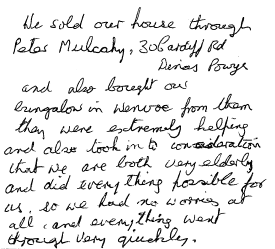 We sold our house through
Peter Mulcahy, 30 Cardiff Rd
Dinas Powys
and also bought our
bungalow in Wenvoe from them
they were extremely helping
and also took in to consideration
that we are both very elderly
and did every thing possible for
us, so we had no worries at
all, and every thing went
through very quickly.